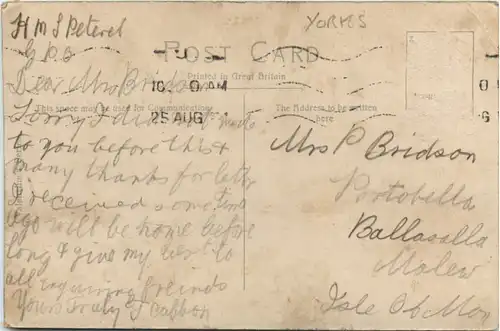 H M S Peterel
G.P.O
YORKS
POST CARD
Printed in Great Britain
10. 0 AM
25 AUG
This space may be used for Communications
The Address to be written
here
Dear Mrs Bridson
Sorry I didn't
to you before this &
many thanks for letter
I received sometime
ago will be home before
long & give my best to
all enquiring freinds
Yours Truly J
Mrs P Bridson
Portobella
Ballasalla
Malew
Isle Of Man